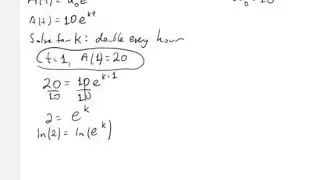 A(t) = a₀e
A(t) = 10e^{kt}
Solve for k: double every hour
t=1, A(1)=20
20 = 10e^{k·1}
10 10
2 = e^k
ln(2) = ln(e^k)